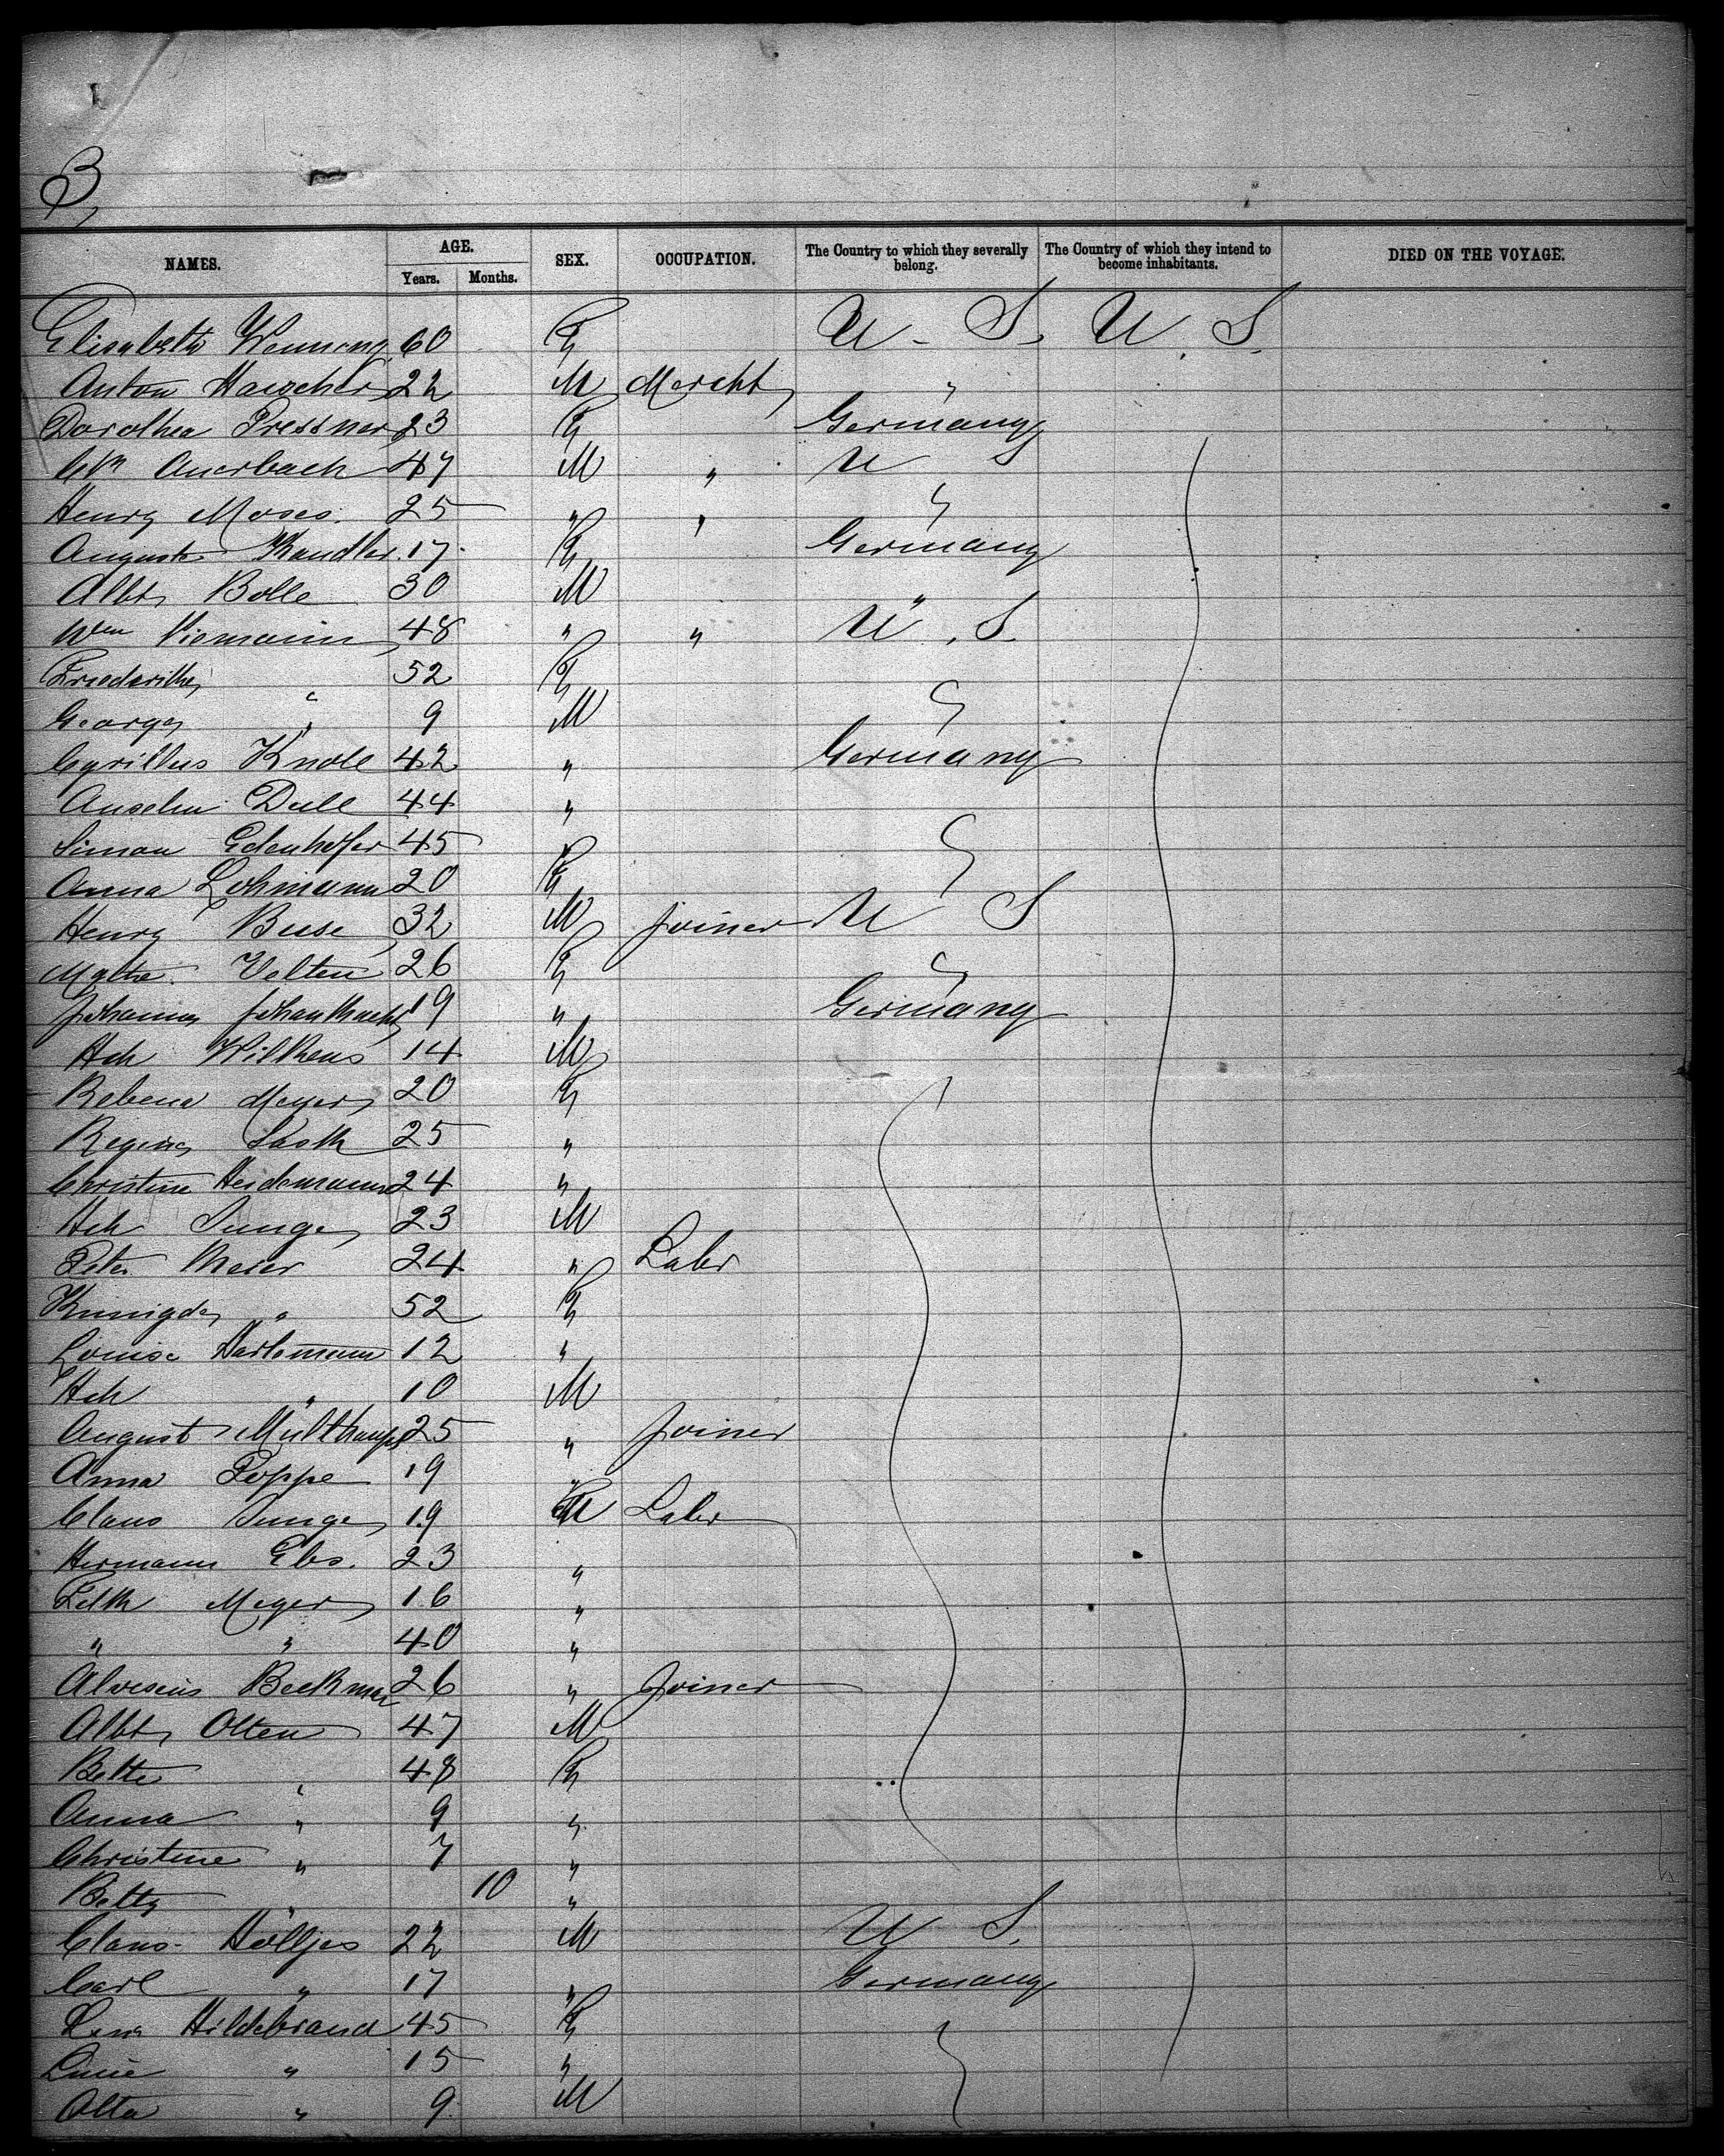 3,
NAMES. AGE. Years. Months. SEX. OCCUPATION. The Country to which they severally belong. The Country of which they intend to become inhabitants. DIED ON THE VOYAGE.
Elisabeth 60 F U - S. U. S.
Anton 22 M Mercht "
Dorothea Pressner 23 F Germany
Auerbach 47 M " U S
Henry Moses. 25 " "
Auguste Kandler. 17. F Germany
Albt Bolle 30 M "
Wm Niemann 48 " " U. S.
Friederike " 52 F
George " 9 M
Cyrillus Knoll 42 " Germany
Anselm Dull 44 "
Simon Edenhofer 45 "
Anna Lohmann 20 F
Henry Buse 32 M Joiner U S
Velten 26 F
Johanna 19 " Germany
Hch Wilkens 14 M
Rebena Meyer 20 F
Regina 25 "
Christine Heidemann 24 "
Hch Junge 23 M
Peter Meier 24 " Labr
Kunigde " 52 F
Louise Hartmann 12 "
Hch " 10 M
August Multhaupt 25 " Joiner
Anna Poppe 19 "
Claus Junge 19 M Labr
Hermann Ebs. 23 "
Meyer 16 "
" " 40 "
Aloesius Beckman 26 " Joiner
Albt Otten 47 M
Bette " 48 F
Anna " 9 "
Christine " 7 "
Betty " 10 "
Claus Höltjes 22 M U S.
Carl " 17 " Germany
Lena Hildebrand 45 F
" 15 "
" 9. M